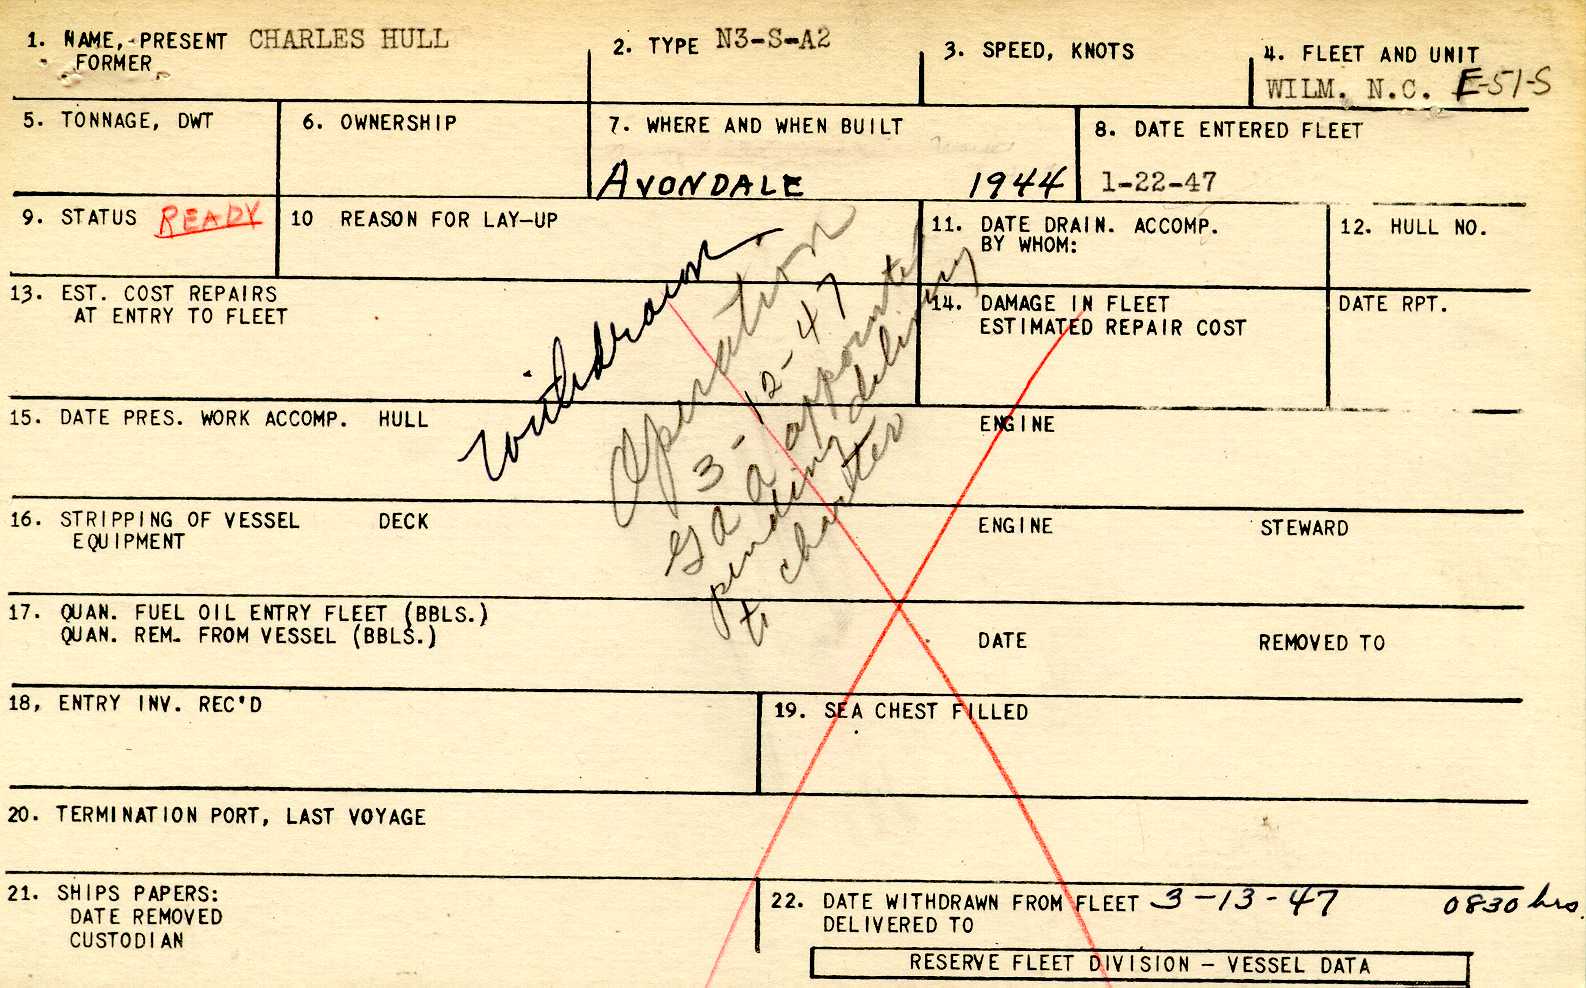 1. NAME, PRESENT CHARLES HULL
FORMER
2. TYPE N3-S-A2
3. SPEED, KNOTS
4. FLEET AND UNIT
WILM. N.C. E-51-S
5. TONNAGE, DWT
6. OWNERSHIP
7. WHERE AND WHEN BUILT
AVONDALE 1944
8. DATE ENTERED FLEET
1-22-47
9. STATUS READY
10 REASON FOR LAY-UP
11. DATE DRAIN. ACCOMP.
BY WHOM:
12. HULL NO.
13. EST. COST REPAIRS
AT ENTRY TO FLEET
14. DAMAGE IN FLEET
ESTIMATED REPAIR COST
DATE RPT.
withdrawn
Operation
3-12-47
G a a appointed
pending delivery
to charter
15. DATE PRES. WORK ACCOMP. HULL
ENGINE
16. STRIPPING OF VESSEL DECK
EQUIPMENT
ENGINE
STEWARD
17. QUAN. FUEL OIL ENTRY FLEET (BBLS.)
QUAN. REM. FROM VESSEL (BBLS.)
DATE
REMOVED TO
18, ENTRY INV. REC'D
19. SEA CHEST FILLED
20. TERMINATION PORT, LAST VOYAGE
21. SHIPS PAPERS:
DATE REMOVED
CUSTODIAN
22. DATE WITHDRAWN FROM FLEET 3-13-47 0830 hrs.
DELIVERED TO
RESERVE FLEET DIVISION - VESSEL DATA